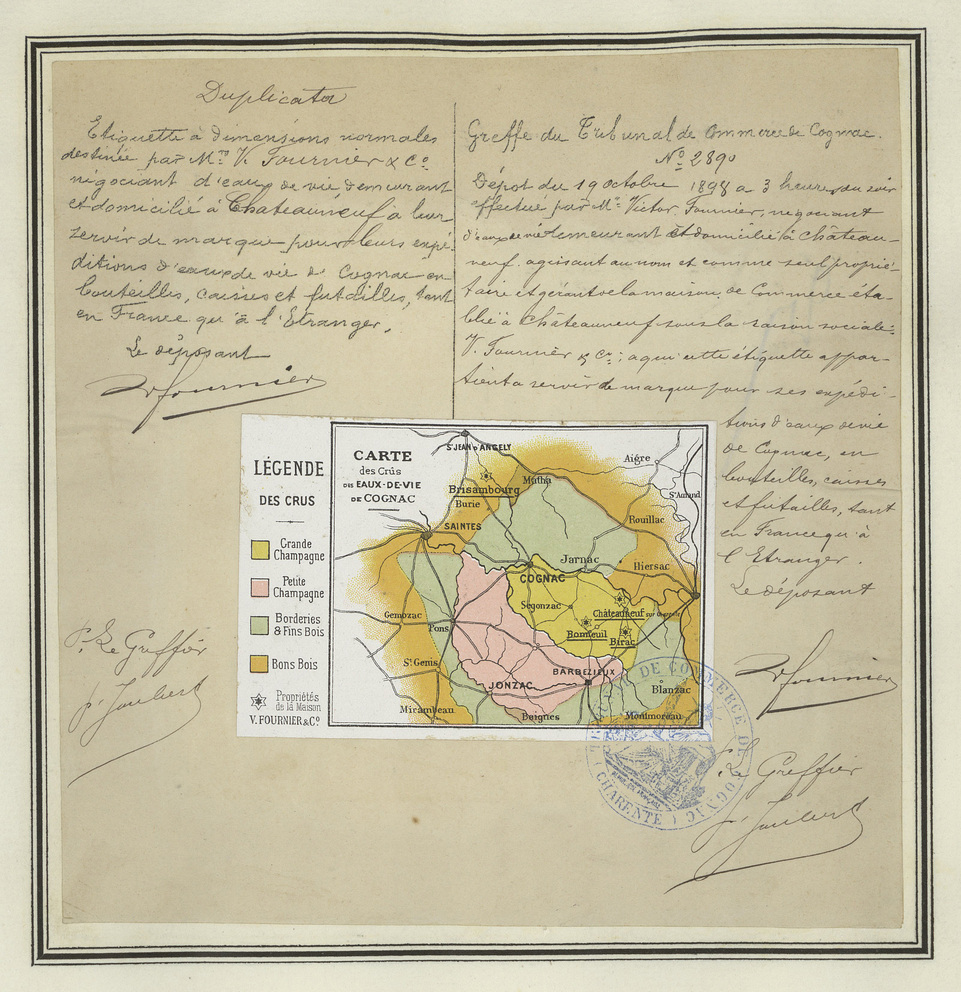 Duplicator
Etiquette à dimensions normales
destinée par Mr V. Fournier & Co
négociant d'eaux de vie demeurant
et domicilié à Chateauneuf à leur
servir de marque pour leurs expé-
ditions d'eaux de vie de Cognac en
bouteilles, caisses et futailles, tant
en France qu'à l'Etranger.
Le déposant
V. Fournier
P. Le Greffier
Greffe du Tribunal de Commerce de Cognac.
No 2890
Dépot du 19 octobre 1898 a 3 heures du soir
effectué par Mr Victor Fournier, négociant
d'eaux de vie demeurant et domicilié à Château-
neuf. agissant au nom et comme seul proprié-
taire et gérant de la maison de Commerce éta-
blie à Châteauneuf sous la raison sociale:
V. Fournier & Co; a qui cette étiquette appar-
tient a servir de marque pour ses expédi-
tions d'eaux de vie
de Cognac, en
bouteilles, caisses
et futailles, tant
en France qu'à
l'Etranger.
Le déposant
V. Fournier
Le Greffier
LÉGENDE
DES CRUS
Grande
Champagne
Petite
Champagne
Borderies
& Fins Bois
Bons Bois
Propriétés
de la Maison
V. FOURNIER & Co
CARTE
des Crûs
DES EAUX-DE-VIE
DE COGNAC
St JEAN d'ANGELY
Aigre
Matha
Brisambourg
St Amand
Burie
Rouillac
SAINTES
Jarnac
Hiersac
COGNAC
Segonzac
Châteauneuf sur Charente
Gemozac
Pons
Bonneuil
Birac
St Genis
BARBEZIEUX
JONZAC
Blanzac
Mirambeau
Baignes
Montmoreau
TRIBUNAL DE COMMERCE DE COGNAC
(CHARENTE)